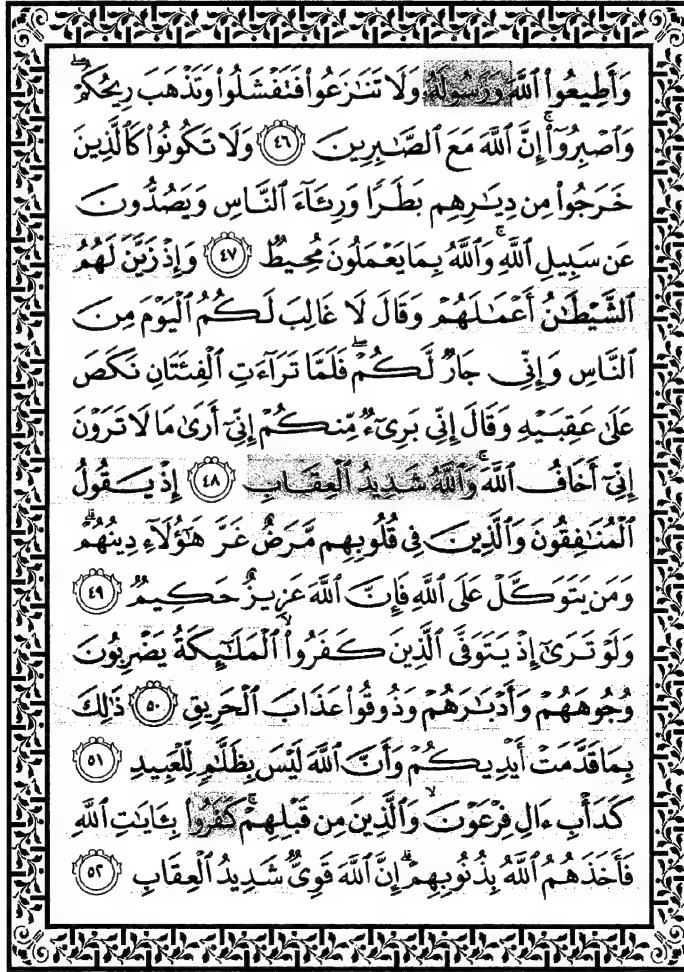 وَأَطِيعُواْ ٱللَّهَ وَرَسُولَهُۥ وَلَا تَنَٰزَعُواْ فَتَفۡشَلُواْ وَتَذۡهَبَ رِيحُكُمۡۖ
وَٱصۡبِرُوٓاْۚ إِنَّ ٱللَّهَ مَعَ ٱلصَّٰبِرِينَ ٤٦ وَلَا تَكُونُواْ كَٱلَّذِينَ
خَرَجُواْ مِن دِيَٰرِهِم بَطَرٗا وَرِئَآءَ ٱلنَّاسِ وَيَصُدُّونَ
عَن سَبِيلِ ٱللَّهِۚ وَٱللَّهُ بِمَا يَعۡمَلُونَ مُحِيطٞ ٤٧ وَإِذۡ زَيَّنَ لَهُمُ
ٱلشَّيۡطَٰنُ أَعۡمَٰلَهُمۡ وَقَالَ لَا غَالِبَ لَكُمُ ٱلۡيَوۡمَ مِنَ
ٱلنَّاسِ وَإِنِّي جَارٞ لَّكُمۡۖ فَلَمَّا تَرَآءَتِ ٱلۡفِئَتَانِ نَكَصَ
عَلَىٰ عَقِبَيۡهِ وَقَالَ إِنِّي بَرِيٓءٞ مِّنكُمۡ إِنِّيٓ أَرَىٰ مَا لَا تَرَوۡنَ
إِنِّيٓ أَخَافُ ٱللَّهَۚ وَٱللَّهُ شَدِيدُ ٱلۡعِقَابِ ٤٨ إِذۡ يَقُولُ
ٱلۡمُنَٰفِقُونَ وَٱلَّذِينَ فِي قُلُوبِهِم مَّرَضٌ غَرَّ هَٰٓؤُلَآءِ دِينُهُمۡۗ
وَمَن يَتَوَكَّلۡ عَلَى ٱللَّهِ فَإِنَّ ٱللَّهَ عَزِيزٌ حَكِيمٞ ٤٩
وَلَوۡ تَرَىٰٓ إِذۡ يَتَوَفَّى ٱلَّذِينَ كَفَرُواْ ٱلۡمَلَٰٓئِكَةُ يَضۡرِبُونَ
وُجُوهَهُمۡ وَأَدۡبَٰرَهُمۡ وَذُوقُواْ عَذَابَ ٱلۡحَرِيقِ ٥٠ ذَٰلِكَ
بِمَا قَدَّمَتۡ أَيۡدِيكُمۡ وَأَنَّ ٱللَّهَ لَيۡسَ بِظَلَّٰمٖ لِّلۡعَبِيدِ ٥١
كَدَأۡبِ ءَالِ فِرۡعَوۡنَۙ وَٱلَّذِينَ مِن قَبۡلِهِمۡۚ كَفَرُواْ بِـَٔايَٰتِ ٱللَّهِ
فَأَخَذَهُمُ ٱللَّهُ بِذُنُوبِهِمۡۗ إِنَّ ٱللَّهَ قَوِيّٞ شَدِيدُ ٱلۡعِقَابِ ٥٢